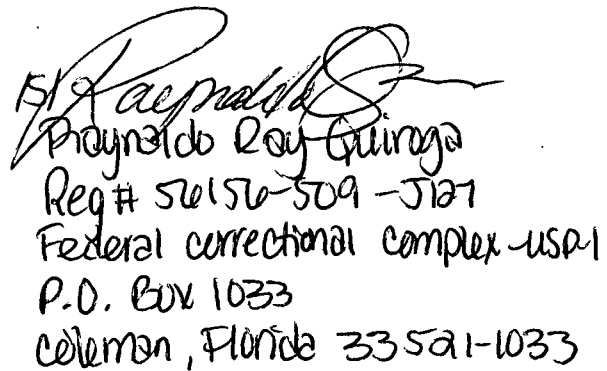 /s/ Raynaldo
Raynaldo Ray Quiroga
Reg# 56156-509 -J127
Federal correctional complex-USP-1
P.O. Box 1033
coleman, Florida 33521-1033